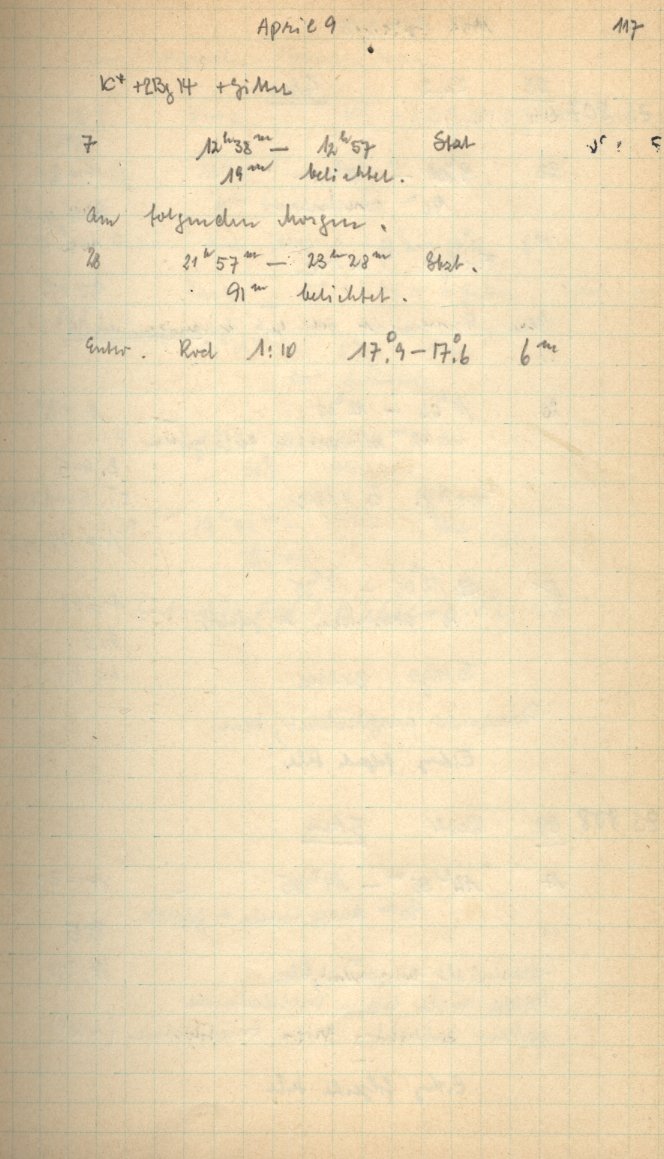 April 9 117
K* + 2Bg 14 + Gitter
7 12ʰ38ᵐ — 12ʰ57 Stat
19ᵐ belichtet.
Am folgenden Morgen.
28 21ʰ57ᵐ — 23ʰ28ᵐ Stat.
91ᵐ belichtet.
Entw. Rod 1:10 17°,9 — 17°,6 6ᵐ